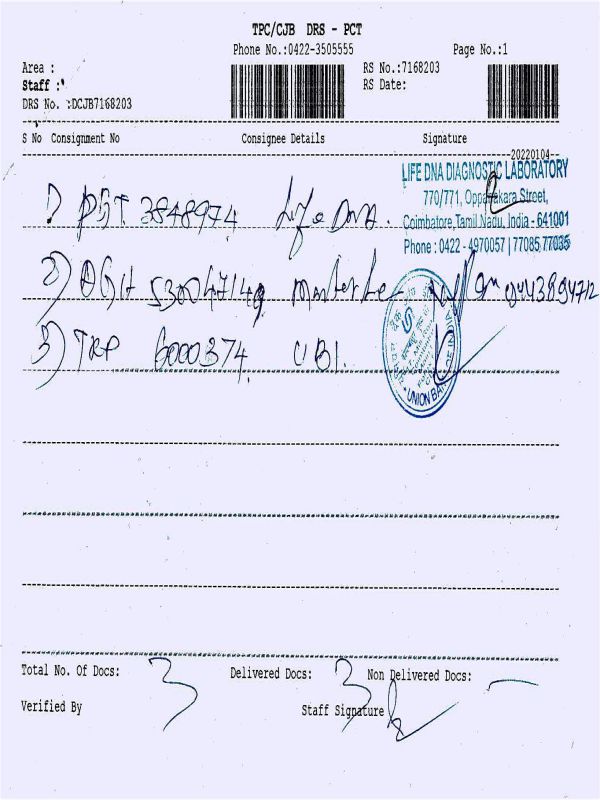 TPC/CJB DRS - PCT
Phone No.:0422-3505555 Page No.:1
Area : RS No.:7168203
Staff : RS Date:
DRS No. :DCJB7168203
S No Consignment No Consignee Details Signature
20220104
LIFE DNA DIAGNOSTIC LABORATORY
770/771, Oppanakara Street,
Coimbatore,Tamil Nadu, India - 641001
Phone : 0422 - 4970057 | 77085 77035
1) 3848974 Life DNA.
2) 530047149 9443894712
3) TRP 6000374 UBI.
UNION BANK
Total No. Of Docs: 3 Delivered Docs: 3 Non Delivered Docs: -
Verified By Staff Signature